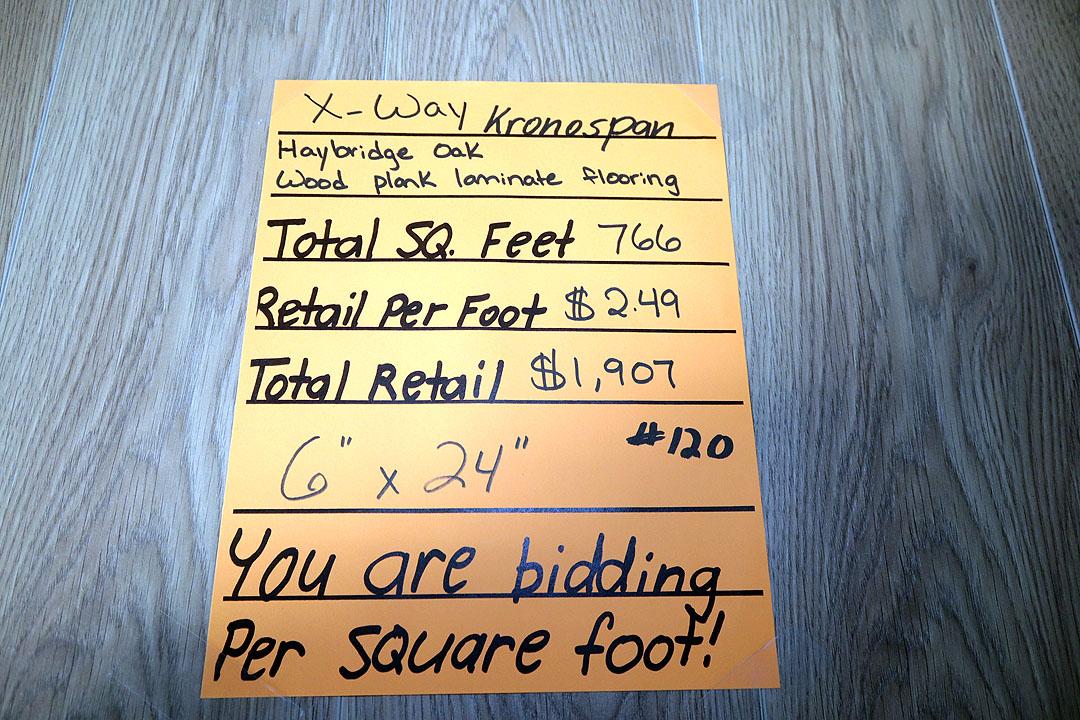 X-Way Kronospan
Haybridge Oak
Wood plank laminate flooring
Total SQ. Feet 766
Retail Per Foot $2.49
Total Retail $1,907
6" x 24" #120
You are bidding
Per square foot!